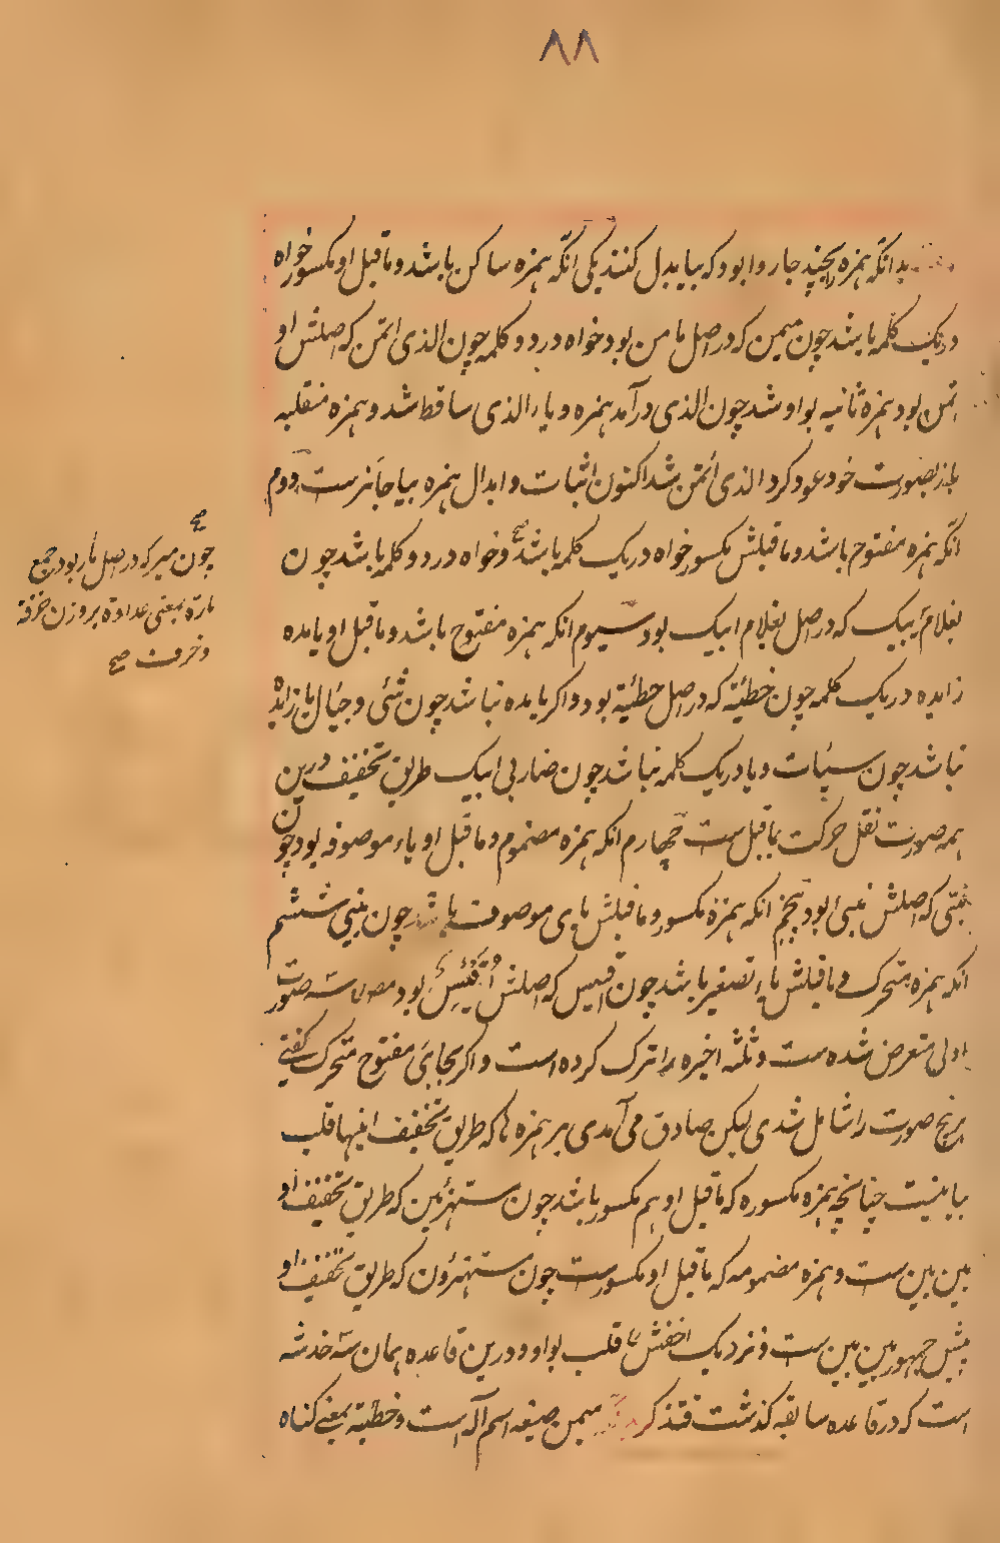 ٨٨
بدانکه همزه بپنج جا روا بود که بیا بدل کنند یکی آنکه همزه ساکن باشد و ماقبل او مکسور خواه
در یک کلمه باشد چون میمن که در اصل مامن بود خواه در دو کلمه چون الذی ائتمن که اصلش او
تمن بود همزه ثانیه بواو شد چون الذی درآمد همزه و یاء الذی ساقط شد و همزه منقلبه
باز بصورت خود عود کرد الذی ائتمن شد اکنون اثبات و ابدال همزه بیا جائزست دوم
آنکه همزه مفتوح باشد و ماقبلش مکسور خواه در یک کلمه باشد و خواه در دو کلمه باشد چون
صح
چون میر که در اصل مأر بود جمع
مارة بمعنی عداوة بر وزن خرفة
و خرف صح
بغلام یبیک که در اصل بغلام ابیک بود سیوم آنکه همزه مفتوح باشد و ماقبل او یا مده
زایده در یک کلمه چون خطیّة که در اصل خطیئة بود و اگر یا مده نباشد چون شئی و جیأل یا زایده
نباشد چون سیئات و یا در یک کلمه نباشد چون ضاربی ابیک طریق تخفیف درین
همه صورت نقل حرکت بماقبل ست چهارم آنکه همزه مضموم و ماقبل او یاء موصوفه بود چون
نبیّ که اصلش نبیئ بود پنجم آنکه همزه مکسور و ماقبلش یای موصوف باشد چون نبیی ششم
آنکه همزه متحرک و ماقبلش یاء تصغیر باشد چون افیس که اصلش افیئس بود صورت
اولی متعرض شده ست و ثلثه اخیره را ترک کرده است و اگر بجای مفتوح متحرک گفتی
هر پنج صورت را شامل شدی لیکن صادق می آمدی بر همزه ها که طریق تخفیف اینها قلب
بیا نیست چنانچه همزه مکسوره که ماقبل او هم مکسور باشد چون مستهزئین که طریق تخفیف او
بین بین ست و همزه مضمومه که ماقبل او مکسورست چون مستهزؤن که طریق تخفیف او
پیش جمهور بین بین ست و نزدیک اخفش قلب بواو و درین قاعده همان سه خدشه
است که در قاعده سابقه گذشت فتذکر میمن صیغه اسم آله است و خطیّة بمعنی گناه